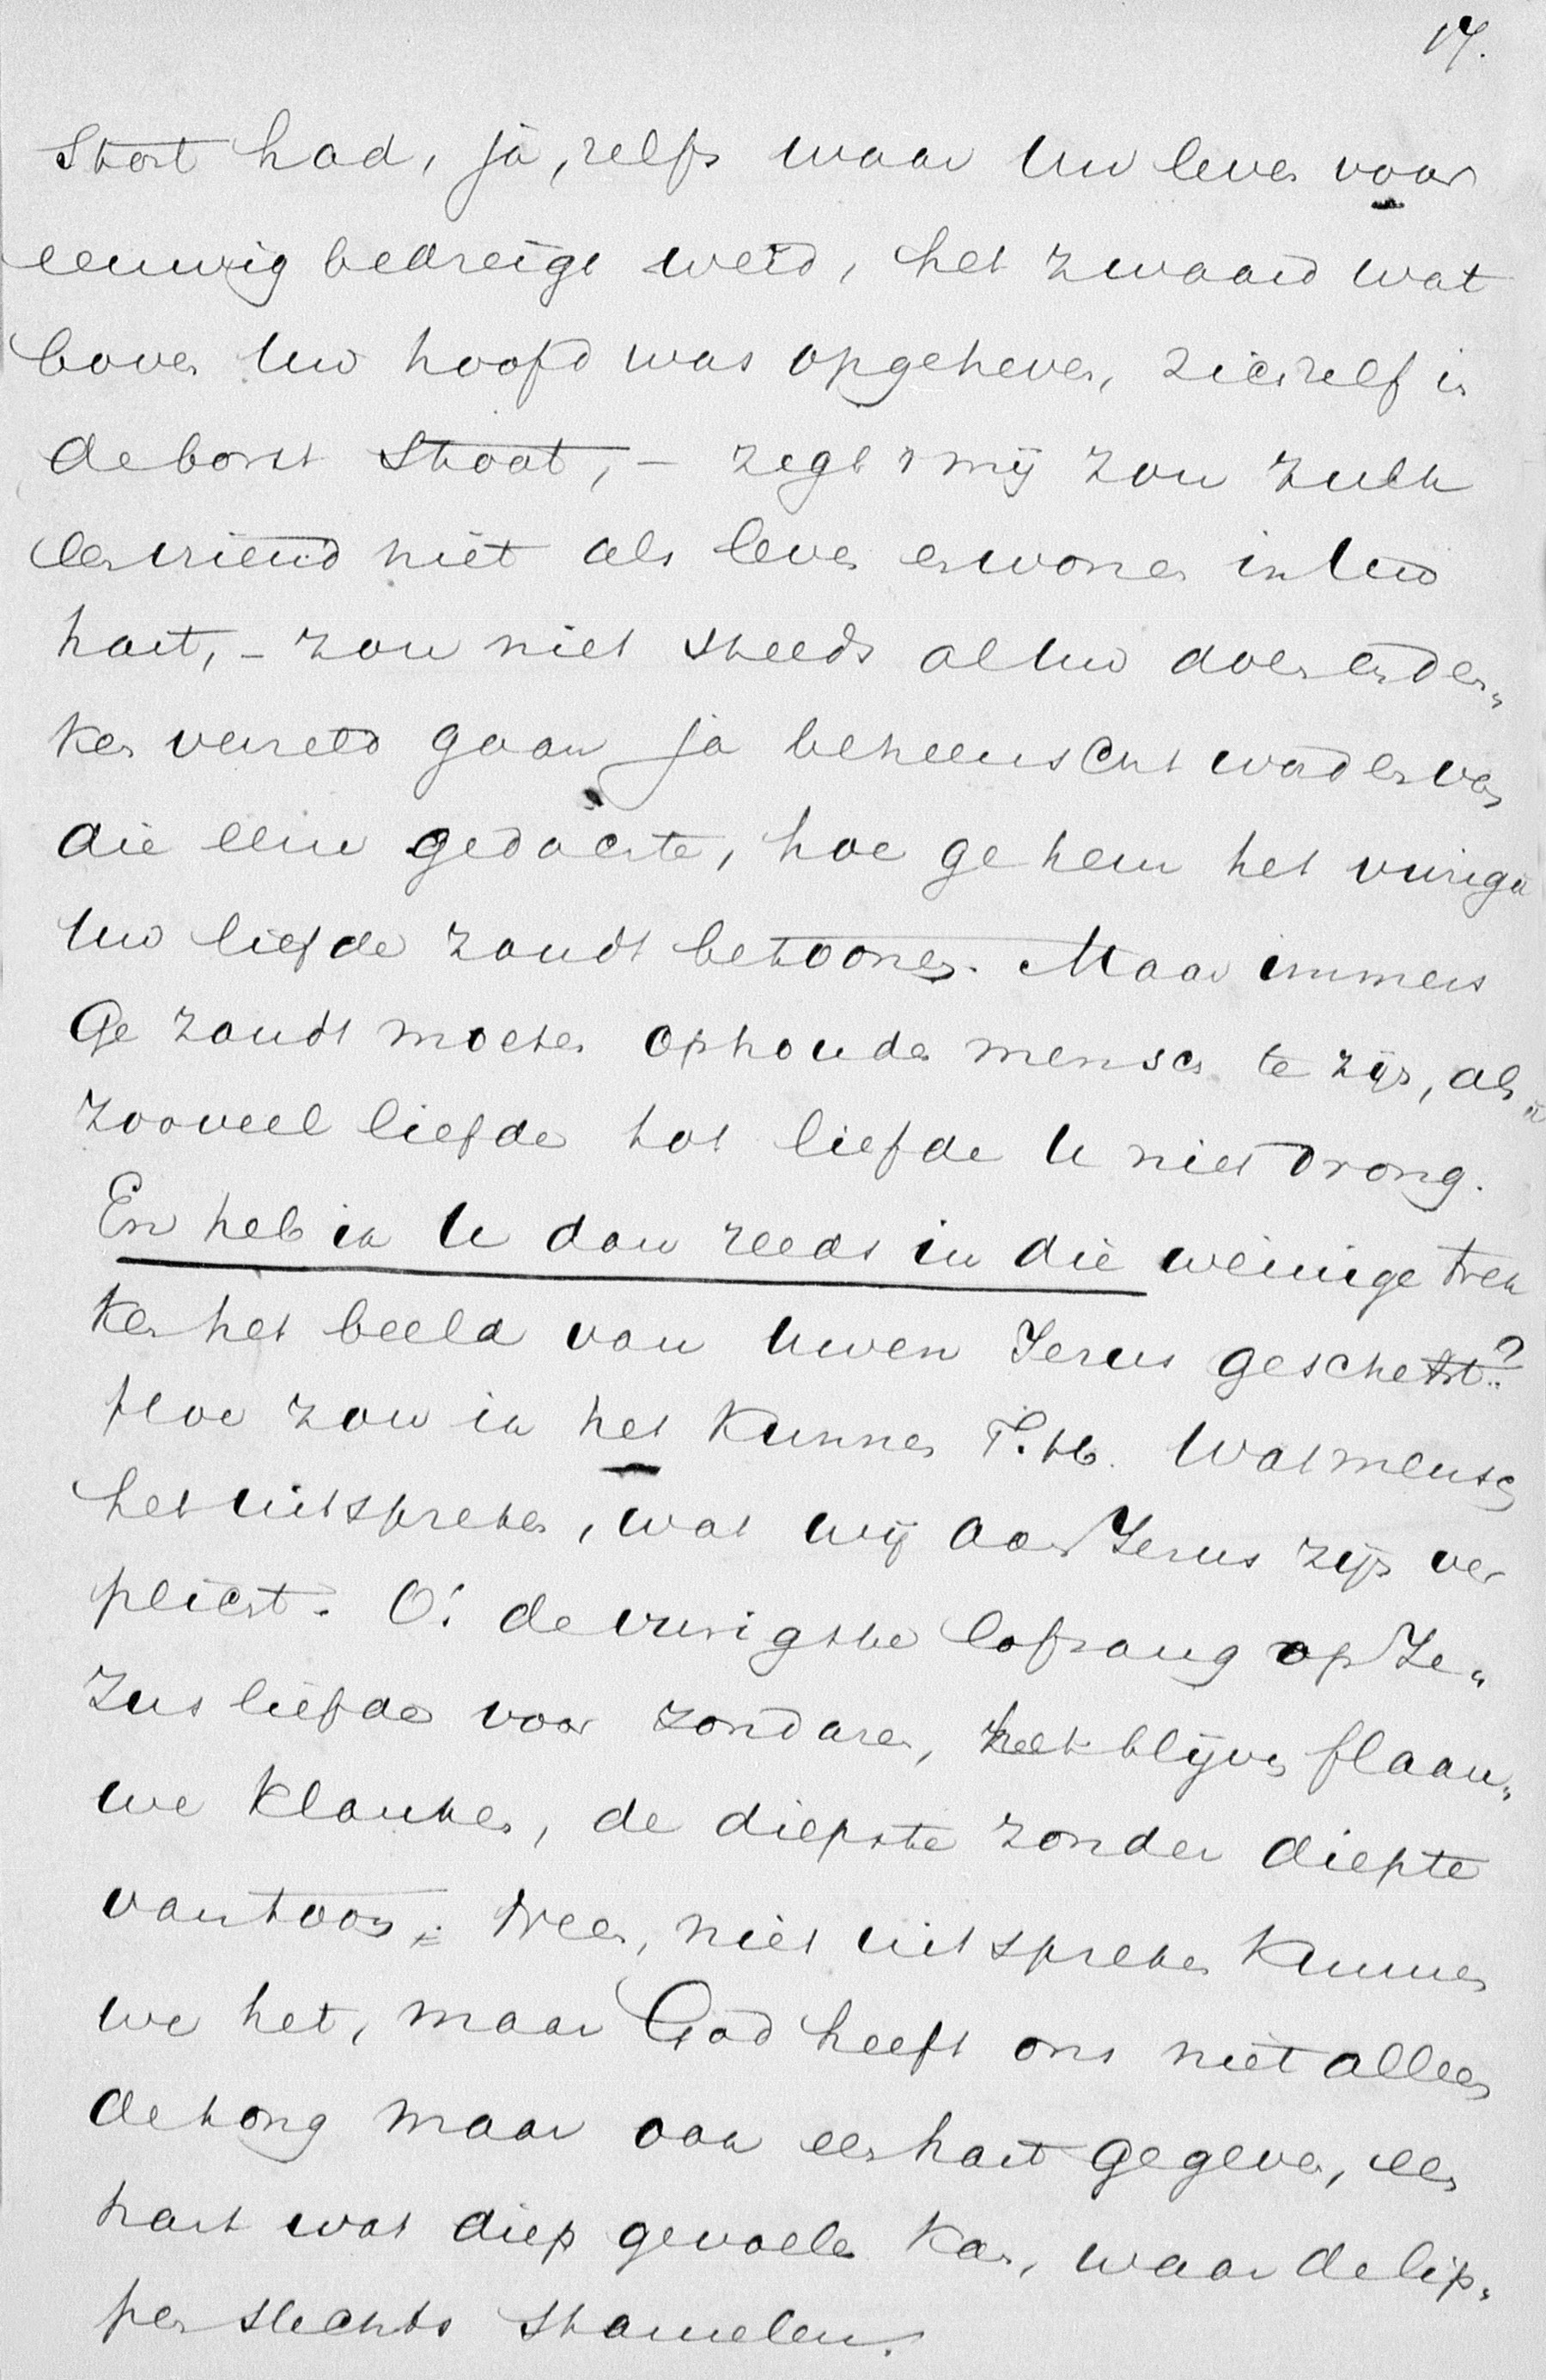 17.
stort had, ja, zelfs waar Uw leven voor
eeuwig bedreigt werd, het zwaard wat
boven Uw hoofd was opgeheven, zichzelf in
de borst stoot, – zegt mij zou zulk
een vriend niet als leven en wonen in Uw
hart, – zou niet steeds al Uw doen en den„
ken vereeld gaan ja beheerscht worden van
die eene gedachte, hoe ge hem het vurigst
Uw liefde zoudt betoonen. Maar immers
Ge zoudt moeten ophouden mensch te zijn, als
zooveel liefde tot liefde U niet drong.
En heb ik U dan reeds in die weinige trek
ken het beeld van Uwen Jezus geschetst?
Hoe zou ik het kunnen T.H. Wat mensch
het uitspreken, wat wij aan Jezus zijn ver
plicht. O! de vurigste lofzang op Je„
zus liefde voor zondaren, het blijven flaau„
we klanken, de diepste zonder diepte
van toon. Neen, niet uitspreken kunnen
we het, maar God heeft ons niet alleen
de tong maar ook een hart gegeven, een
hart wat diep gevoelen kan, waar de lip„
pen slechts stamelen.